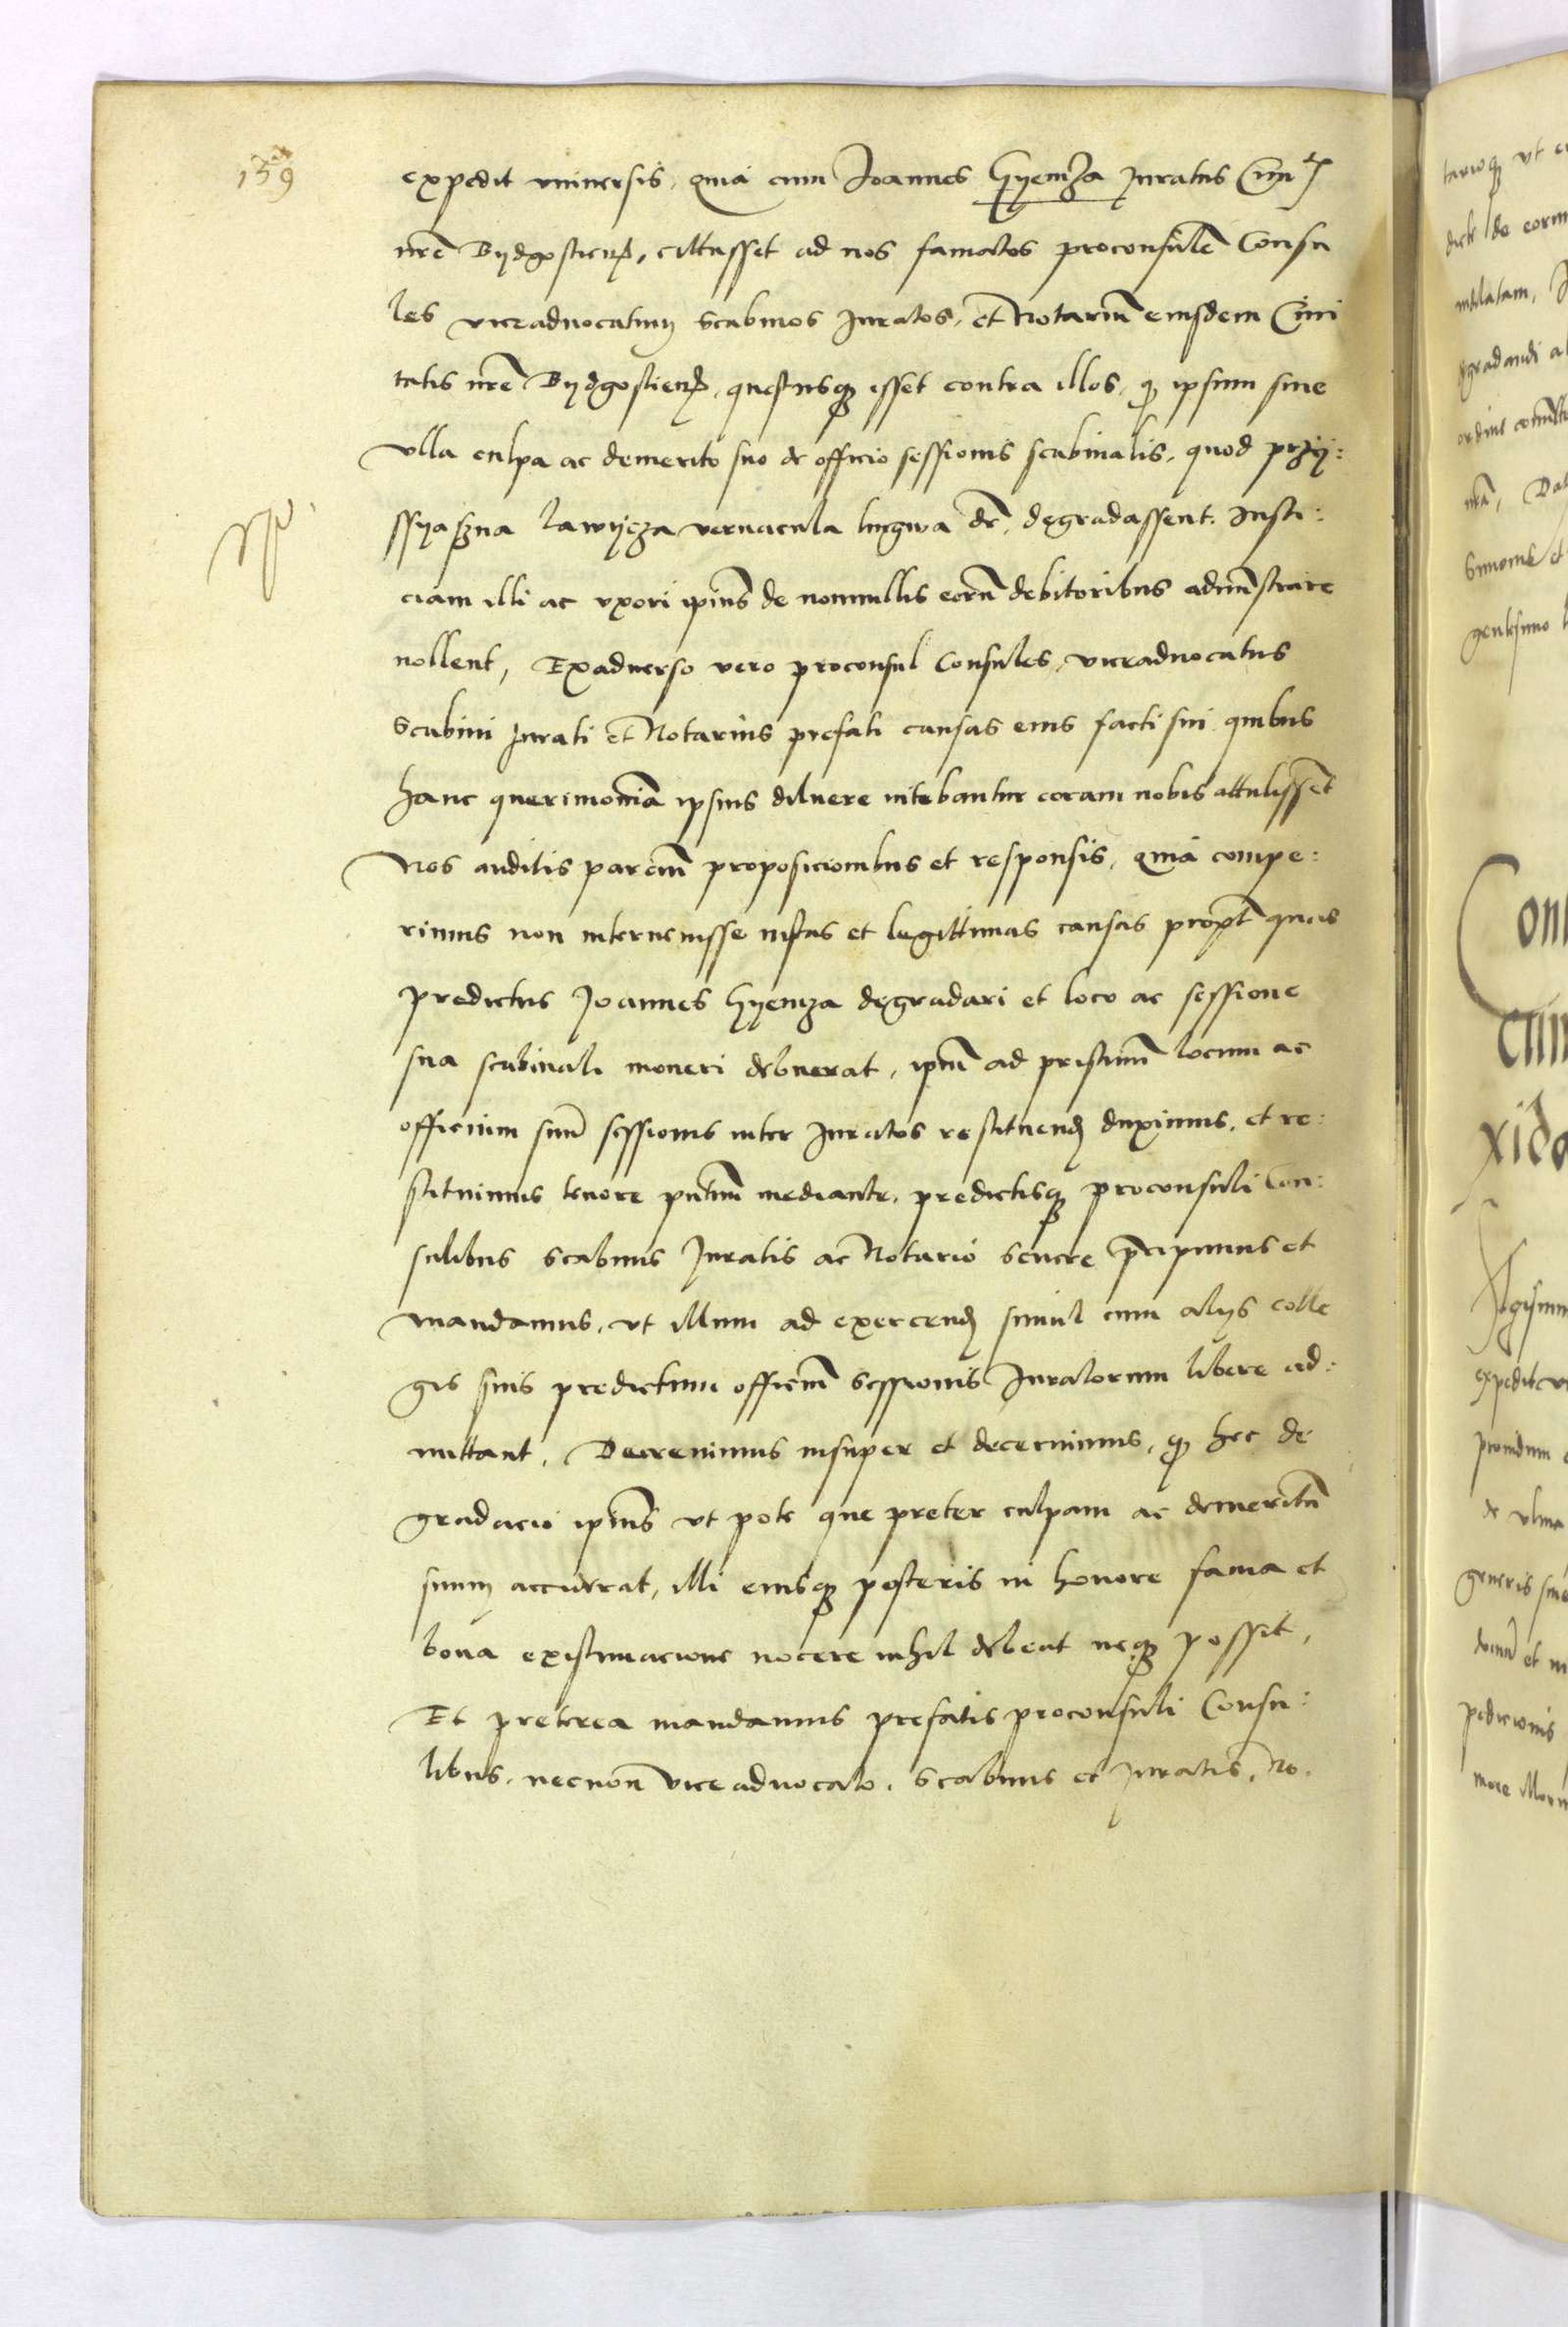 159
expedit vniuersis, quia cum Joannes Hyemza Juratus Ciuit
nrẽ Bydgostien, citasset ad nos famatos proconsulẽ Consu
les viceaduocatum Scabinos Juratos, et Notariũ eiusdem Ciui
tatis nrẽ Bydgostien, questusq esset contra illos, q ipsum sine
vlla culpa ac demerito suo de officio sessionis scabinalis, quod przy:
ssyaszna lawycza vernacula lingwa dr, degradassent. Justi:
ciam illi ac vxori ipius de nonnullis eorũ debitoribus administrare
nollent, Exaduerso vero proconsul Consules, viceaduocatus
Scabini Jurati et Notarius prefati causas eius facti sui quibus
hanc querimoniã ipsius diluere nitebantur coram nobis attulissent
Nos auditis parciũ proposicionibus et responsis, quia compe:
rimus non interuenisse iustas et legittimas causas propt quas
predictus Joannes Hyemza degradari et loco ac sessione
sua scabinali moueri debuerat, ipm ad pristinũ locum ac
officium suũ sessionis inter Juratos restituend duximus, et re:
stituimus tenore pntium mediante, predictisq proconsuli Con:
sulibus Scabinis Juratis ac Notario seuere precipimus et
mandamus, vt illum ad exercend simul cum alijs colle
gis suis predictum officiũ sessionis Juratorum libere ad:
mittant, Decreuimus insuper et decernimus, q hec de
gradacio ipius vt pote que preter culpam ac demeritũ
suum accurrat, illi eiusq posteris in honore fama et
bona existimacione nocere nihil debeat neq possit,
Et preterea mandamus prefatis proconsuli Consu:
libus, necnon viceaduocato, Scabinis et Juratis, No.